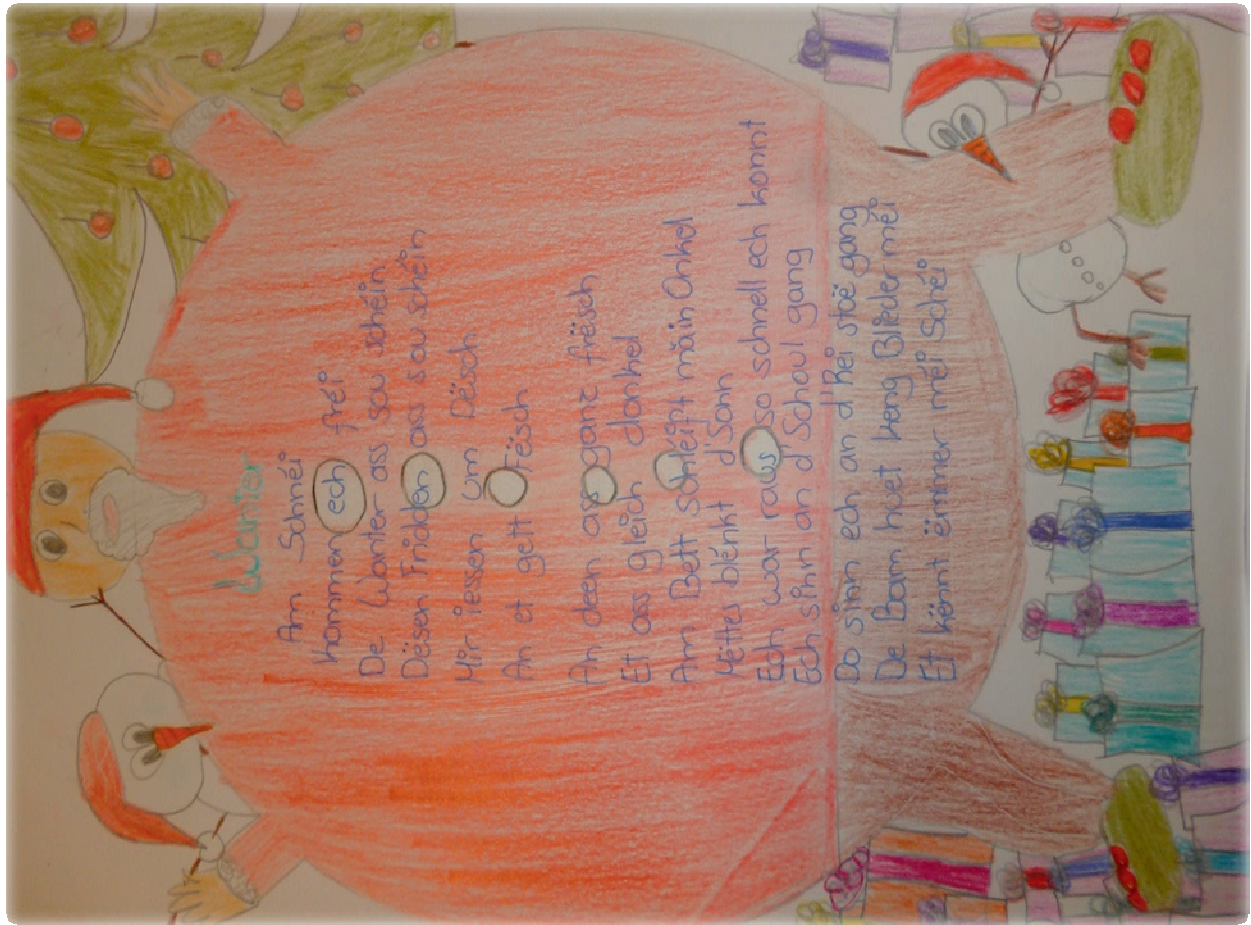 Wanter
Am Schnéi
kommen ech fréi
De Wanter ass sou schéin
Dësen Fridden ass sou schéin
Mir iessen um Dësch
An et gett Fësch
An deen ass ganz frësch
Et ass gleich donkel
Am Bett schléift mäin Onkel
Mëttes blénkt d'Sonn
Ech war raus so schnell ech konnt
Ech sinn an d'Schoul gang
Do sinn ech an d'Rei stoë gang
De Bam huet keng Blieder méi
Et kënnt ëmmer méi Schnéi